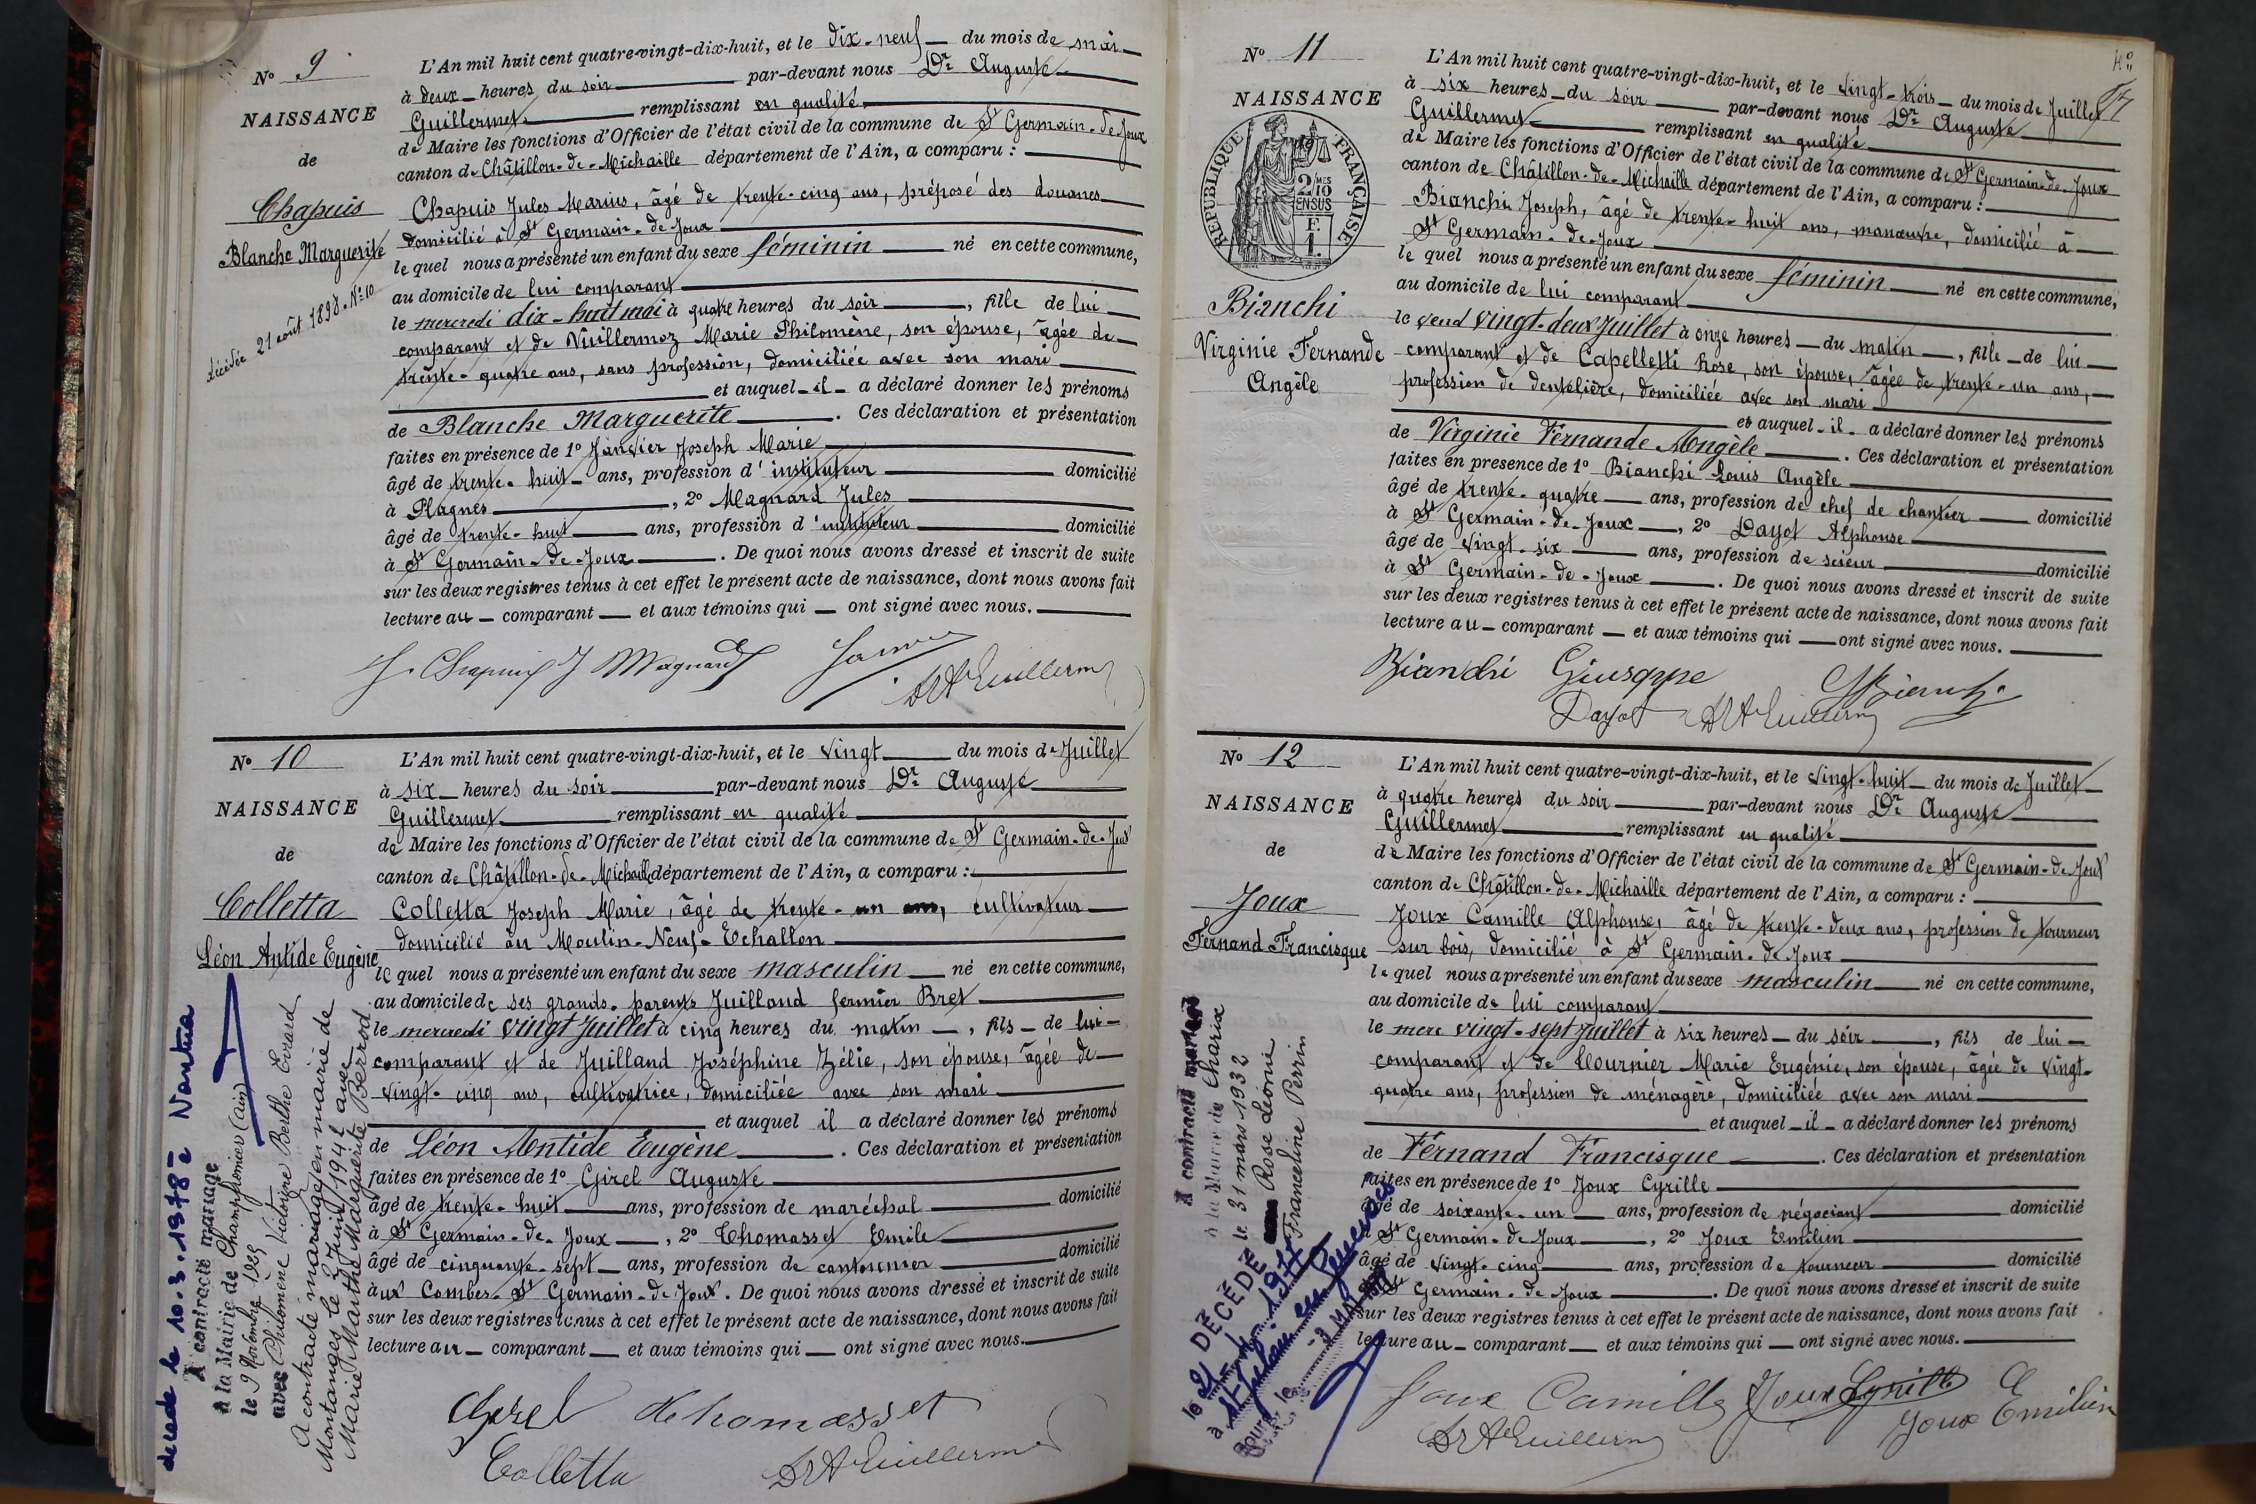 N° 9
NAISSANCE
de
Chapuis
Blanche Marguerite
décédée 21 août 1898. N° 10
L'An mil huit cent quatre-vingt-dix-huit, et le dix-neuf du mois de mai
à deux heures du soir par-devant nous Dr Auguste
Guillermet remplissant en qualité
de Maire les fonctions d'Officier de l'état civil de la commune de St Germain-de-Joux
canton de Châtillon-de-Michaille département de l'Ain, a comparu :
Chapuis Jules Marius, âgé de trente-cinq ans, préposé des douanes
domicilié à St Germain-de-Joux
le quel nous a présenté un enfant du sexe féminin né en cette commune,
au domicile de lui comparant
le mercredi dix-huit mai à quatre heures du soir, fille de lui
comparant et de Vuillermoz Marie Philomène, son épouse, âgée de
trente-quatre ans, sans profession, domiciliée avec son mari
et auquel il a déclaré donner les prénoms
de Blanche Marguerite. Ces déclaration et présentation
faites en présence de 1° Janvier Joseph Marie
âgé de trente-huit ans, profession d'instituteur domicilié
à Plagnes, 2° Magnard Jules
âgé de trente-huit ans, profession d'instituteur domicilié
à St Germain-de-Joux. De quoi nous avons dressé et inscrit de suite
sur les deux registres tenus à cet effet le présent acte de naissance, dont nous avons fait
lecture au comparant et aux témoins qui ont signé avec nous.
J. Chapuis J Magnard
Dr A Guillermet
N° 10
NAISSANCE
de
Colletta
Léon Antide Eugène
décédé le 10.3.1978 à Nantua
A contracté mariage
à la Mairie de Champfromier (Ain)
le 9 Novembre 1925
avec Philomène Victorine Berthe Evrard
A contracté mariage en mairie de
Montanges le Juin 1942 avec
Marie Marthe Marguerite Berrod
L'An mil huit cent quatre-vingt-dix-huit, et le vingt du mois de Juillet
à six heures du soir par-devant nous Dr Auguste
Guillermet remplissant en qualité
de Maire les fonctions d'Officier de l'état civil de la commune de St Germain-de-Joux
canton de Châtillon-de-Michaille département de l'Ain, a comparu :
Colletta Joseph Marie, âgé de trente-un ans, cultivateur
domicilié au Moulin-Neuf-Echallon
le quel nous a présenté un enfant du sexe masculin né en cette commune,
au domicile de ses grands-parents Juilland fermier Bret
le mercredi vingt Juillet à cinq heures du matin, fils de lui
comparant et de Juilland Joséphine Zélie, son épouse, âgée de
vingt-cinq ans, cultivatrice, domiciliée avec son mari
et auquel il a déclaré donner les prénoms
de Léon Antide Eugène. Ces déclaration et présentation
faites en présence de 1° Girel Auguste
âgé de trente-huit ans, profession de maréchal domicilié
à St Germain-de-Joux, 2° Thomasset Emile
âgé de cinquante-sept ans, profession de cantonnier domicilié
aux Combes-St Germain-de-Joux. De quoi nous avons dressé et inscrit de suite
sur les deux registres tenus à cet effet le présent acte de naissance, dont nous avons fait
lecture au comparant et aux témoins qui ont signé avec nous.
Girel Thomasset
Colletta Dr A Guillermet
N° 11
NAISSANCE
REPUBLIQUE FRANÇAISE
2/10 MES
EN SUS
F.
1.
Bianchi
Virginie Fernande
Angèle
L'An mil huit cent quatre-vingt-dix-huit, et le vingt-trois du mois de Juillet
à six heures du soir par-devant nous Dr Auguste
Guillermet remplissant en qualité
de Maire les fonctions d'Officier de l'état civil de la commune de St Germain-de-Joux
canton de Châtillon-de-Michaille département de l'Ain, a comparu :
Bianchi Joseph, âgé de trente-huit ans, manœuvre, domicilié à
St Germain-de-Joux
le quel nous a présenté un enfant du sexe féminin né en cette commune,
au domicile de lui comparant
le vend vingt-deux Juillet à onze heures du matin, fille de lui
comparant et de Capelletti Rose, son épouse, âgée de trente-un ans,
profession de dentelière, domiciliée avec son mari
et auquel il a déclaré donner les prénoms
de Virginie Fernande Angèle. Ces déclaration et présentation
faites en présence de 1° Bianchi Louis Angèle
âgé de trente-quatre ans, profession de chef de chantier domicilié
à St Germain-de-Joux, 2° Dayot Alphonse
âgé de vingt-six ans, profession de scieur domicilié
à St Germain-de-Joux. De quoi nous avons dressé et inscrit de suite
sur les deux registres tenus à cet effet le présent acte de naissance, dont nous avons fait
lecture au comparant et aux témoins qui ont signé avec nous.
Bianchi Giuseppe
Dayot Dr A Guillermet
N° 12
NAISSANCE
de
Joux
Fernand Francisque
A contracté mariage
à la Mairie de Charix
le 31 mars 1932
Rose Léonie
Franceline Perrin
DÉCÉDÉ
le 21
à St Julien en Genevois
L'An mil huit cent quatre-vingt-dix-huit, et le vingt-huit du mois de Juillet
à quatre heures du soir par-devant nous Dr Auguste
Guillermet remplissant en qualité
de Maire les fonctions d'Officier de l'état civil de la commune de St Germain-de-Joux
canton de Châtillon-de-Michaille département de l'Ain, a comparu :
Joux Camille Alphonse, âgé de trente-deux ans, profession de tourneur
sur bois, domicilié à St Germain-de-Joux
le quel nous a présenté un enfant du sexe masculin né en cette commune,
au domicile de lui comparant
le merc vingt-sept Juillet à six heures du soir, fils de lui
comparant et de Tournier Marie Eugénie, son épouse, âgée de vingt-
quatre ans, profession de ménagère, domiciliée avec son mari
et auquel il a déclaré donner les prénoms
de Fernand Francisque. Ces déclaration et présentation
faites en présence de 1° Joux Cyrille
âgé de soixante-un ans, profession de négociant domicilié
à St Germain-de-Joux, 2° Joux Emilien
âgé de vingt-cinq ans, profession de tourneur domicilié
à St Germain-de-Joux. De quoi nous avons dressé et inscrit de suite
sur les deux registres tenus à cet effet le présent acte de naissance, dont nous avons fait
lecture au comparant et aux témoins qui ont signé avec nous.
Joux Camille Joux Cyrille
Dr A Guillermet Joux Emilien